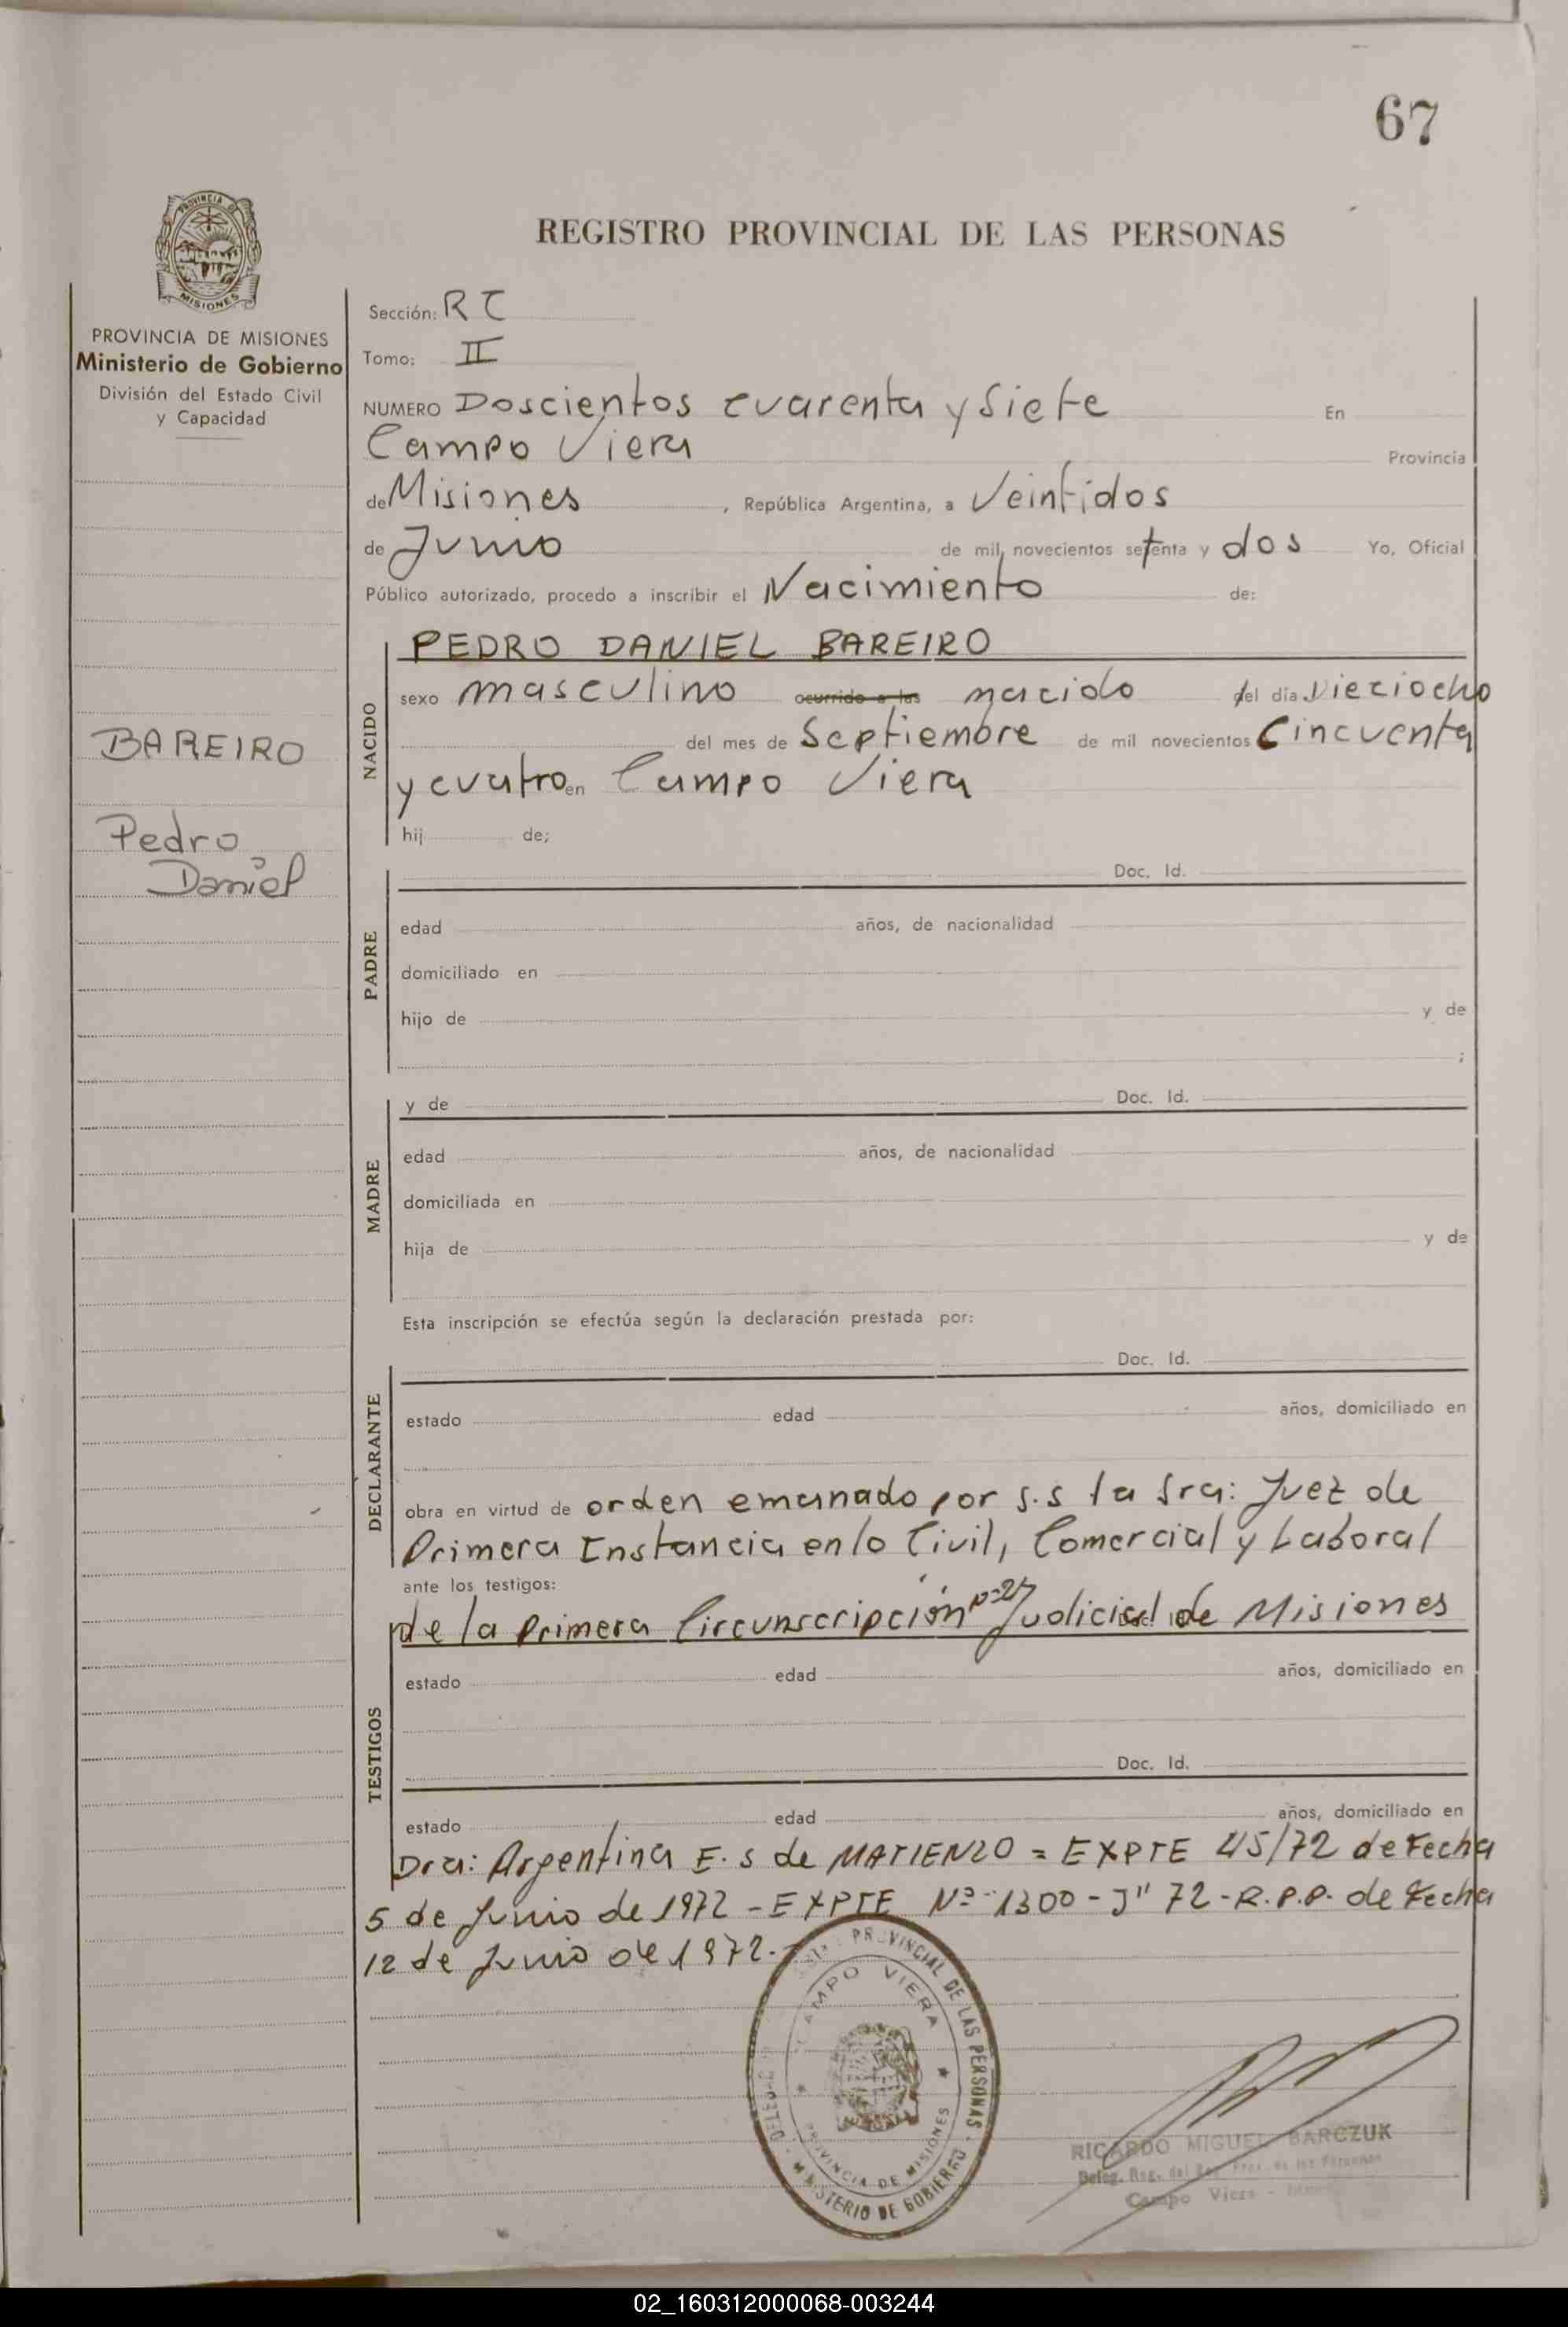 67
REGISTRO PROVINCIAL DE LAS PERSONAS
PROVINCIA DE MISIONES
Ministerio de Gobierno
División del Estado Civil
y Capacidad
BAREIRO
Pedro
Daniel
Sección: RT
Tomo: II
NUMERO Doscientos cuarenta y Siete En
Campo Viera Provincia
de Misiones, República Argentina, a Veintidos
de Junio de mil novecientos setenta y dos Yo, Oficial
Público autorizado, procedo a inscribir el Nacimiento de:
NACIDO
PEDRO DANIEL BAREIRO
sexo masculino ocurrido a las nacido del día Dieciocho
del mes de Septiembre de mil novecientos Cincuenta
y cuatro en Campo Viera
hij de;
PADRE
Doc. Id.
edad años, de nacionalidad
domiciliado en
hijo de y de
;
MADRE
y de Doc. Id.
edad años, de nacionalidad
domiciliada en
hija de y de
Esta inscripción se efectúa según la declaración prestada por:
DECLARANTE
Doc. Id.
estado edad años, domiciliado en
obra en virtud de orden emanado por s.s la Sra: Juez de
Primera Instancia en lo Civil, Comercial y Laboral
ante los testigos:
de la Primera Circunscripción Nº27 Judicial de Misiones
TESTIGOS
estado edad años, domiciliado en
Doc. Id.
estado edad años, domiciliado en
Dra: Argentina E. S de MATIENZO = EXPTE 45/72 de Fecha
5 de Junio de 1972 - EXPTE Nº 1300 - J" 72 - R.P.P. de Fecha
12 de Junio de 1972.-
PROVINCIAL DE LAS PERSONAS
CAMPO VIERA
PROVINCIA DE MISIONES
MINISTERIO DE GOBIERNO
RICARDO MIGUEL BARCZUK
Deleg. Reg. del Reg. Prov. de las Personas
Campo Viera
02_160312000068-003244